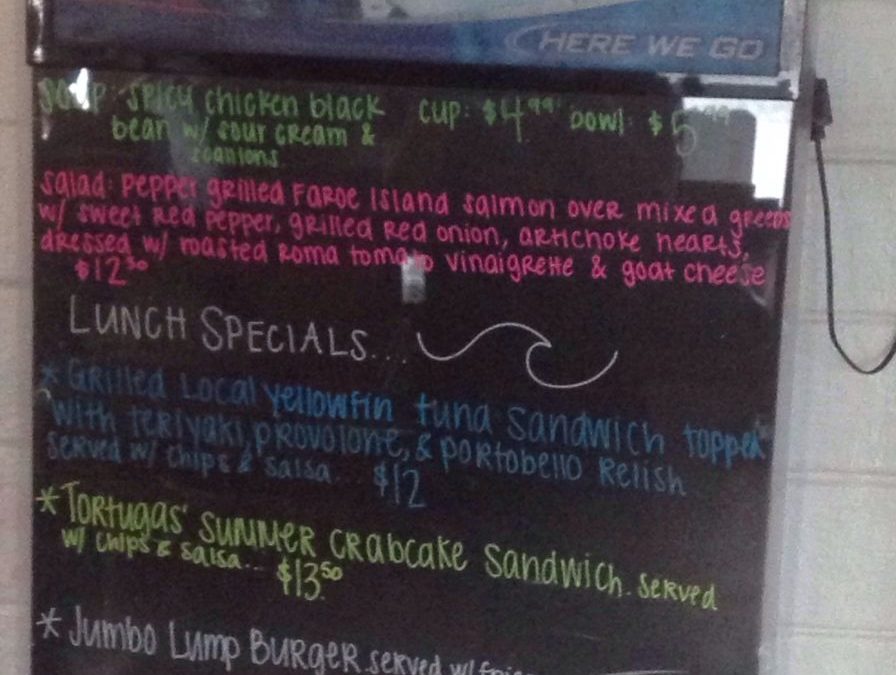 HERE WE GO
soup: spicy chicken black cup: $4.99 bowl: $5.99
bean w/ sour cream &
scallions
salad: pepper grilled Faroe Island salmon over mixed greens
w/ sweet red pepper, grilled red onion, artichoke hearts,
dressed w/ roasted roma tomato vinaigrette & goat cheese
$12.50
LUNCH SPECIALS...
* Grilled Local yellowfin tuna sandwich topped
with teriyaki, provolone, & portobello relish
served w/ chips & salsa... $12
* Tortugas' Summer crabcake sandwich. served
w/ chips & salsa... $13.50
* Jumbo Lump Burger served w/